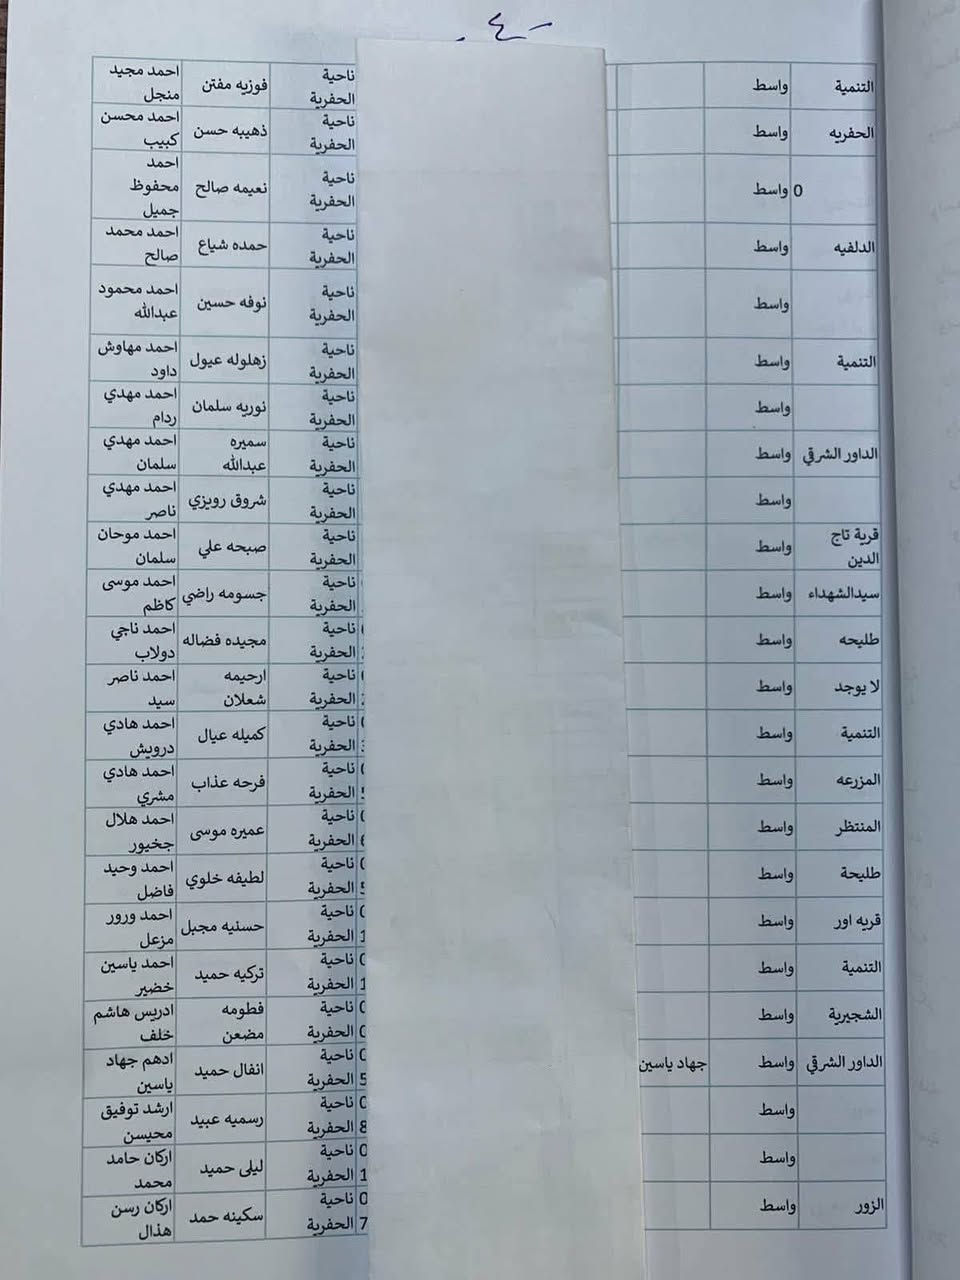 - ٤ -
التنمية واسط ناحية الحفرية فوزيه مفتن احمد مجيد منجل
الحفريه واسط ناحية الحفرية ذهيبه حسن احمد محسن كبيب
0 واسط ناحية الحفرية نعيمه صالح احمد محفوظ جميل
الدلفيه واسط ناحية الحفرية حمده شياع احمد محمد صالح
واسط ناحية الحفرية نوفه حسين احمد محمود عبدالله
التنمية واسط ناحية الحفرية زهلوله عيول احمد مهاوش داود
واسط ناحية الحفرية نوريه سلمان احمد مهدي ردام
الداور الشرقي واسط ناحية الحفرية سميره عبدالله احمد مهدي سلمان
واسط ناحية الحفرية شروق رويزي احمد مهدي ناصر
قرية تاج الدين واسط ناحية الحفرية صبحه علي احمد موحان سلمان
سيدالشهداء واسط ناحية الحفرية جسومه راضي احمد موسى كاظم
طليحه واسط ناحية الحفرية مجيده فضاله احمد ناجي دولاب
لا يوجد واسط ناحية الحفرية ارحيمه شعلان احمد ناصر سيد
التنمية واسط ناحية الحفرية كميله عيال احمد هادي درويش
المزرعه واسط ناحية الحفرية فرحه عذاب احمد هادي مشري
المنتظر واسط ناحية الحفرية عميره موسى احمد هلال جخيور
طليحة واسط ناحية الحفرية لطيفه خلوي احمد وحيد فاضل
قريه اور واسط ناحية الحفرية حسنيه مجبل احمد ورور مزعل
التنمية واسط ناحية الحفرية تركيه حميد احمد ياسين خضير
الشجيرية واسط ناحية الحفرية فطومه مضعن ادريس هاشم خلف
الداور الشرقي واسط جهاد ياسين ناحية الحفرية انفال حميد ادهم جهاد ياسين
واسط ناحية الحفرية رسميه عبيد ارشد توفيق محيسن
واسط ناحية الحفرية ليلى حميد اركان حامد محمد
الزور واسط ناحية الحفرية سكينه حمد اركان رسن هذال